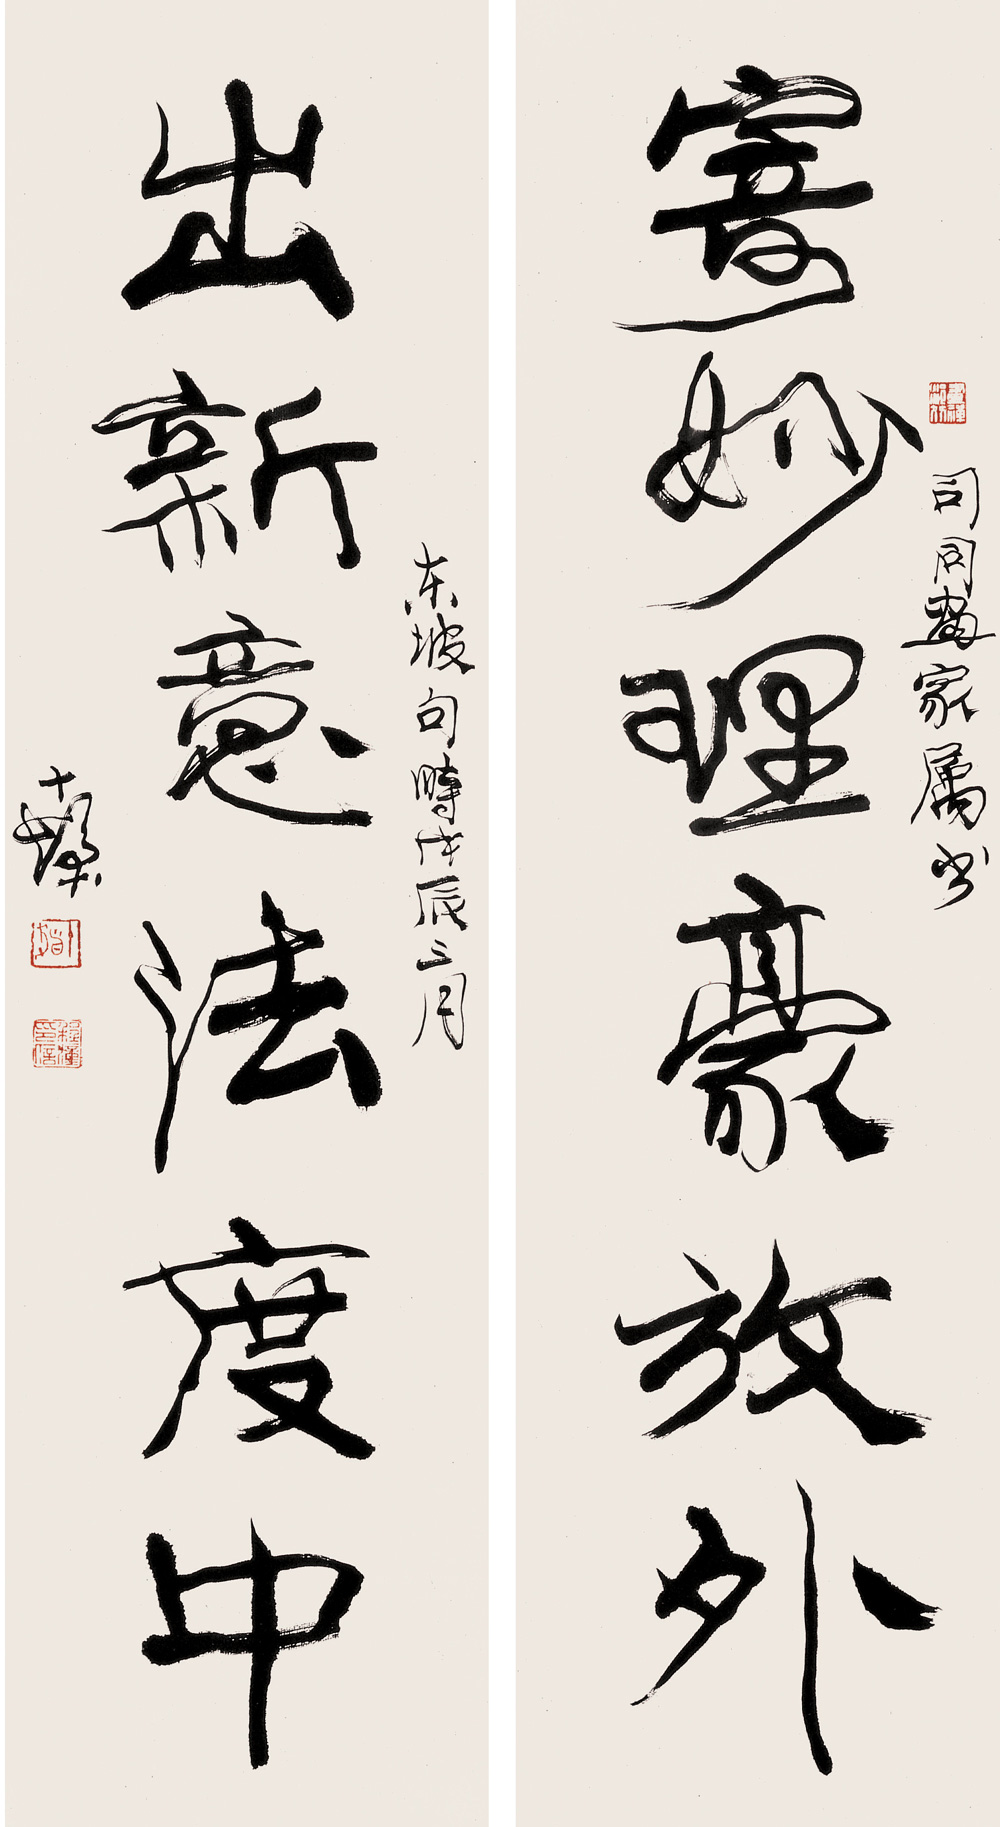 司同画家属书
寄妙理豪放外
出新意法度中
东坡句時戊辰三月
十髮